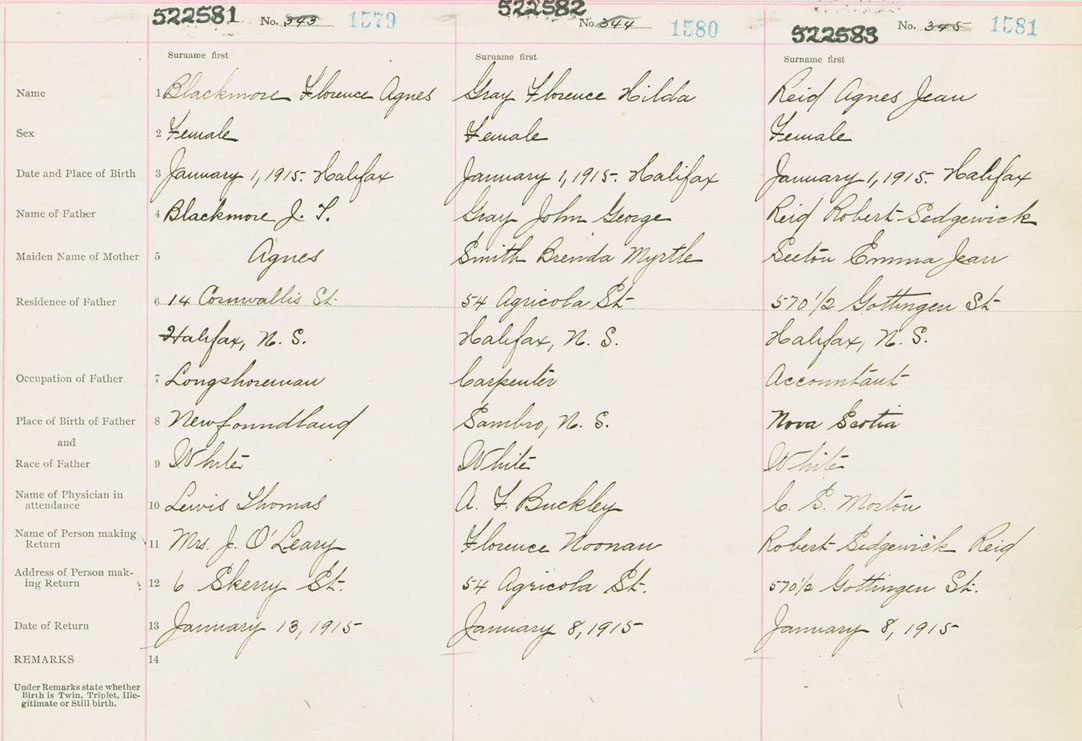 522581 No. 343 1579 522582 No. 344 1580 522583 No. 345 1581
Surname first Surname first Surname first
Name 1 Blackmore Florence Agnes Gray Florence Hilda Reid Agnes Jean
Sex 2 Female Female Female
Date and Place of Birth 3 January 1, 1915. Halifax January 1, 1915. Halifax January 1, 1915. Halifax
Name of Father 4 Blackmore J. T. Gray John George Reid Robert Sedgewick
Maiden Name of Mother 5 Agnes Smith Brenda Myrtle Seeton Emma Jean
Residence of Father 6 14 Cornwallis St. 54 Agricola St. 570 1/2 Gottingen St
Halifax, N. S. Halifax, N. S. Halifax, N. S.
Occupation of Father 7 Longshoreman Carpenter Accountant
Place of Birth of Father 8 Newfoundland Sambro, N. S. Nova Scotia
and
Race of Father 9 White White White
Name of Physician in
attendance 10 Lewis Thomas A. F. Buckley C. S. Morton
Name of Person making
Return 11 Mrs. J. O'Leary Florence Noonan Robert Sedgewick Reid
Address of Person mak-
ing Return 12 6 Skerry St. 54 Agricola St. 570 1/2 Gottingen St.
Date of Return 13 January 13, 1915 January 8, 1915 January 8, 1915
REMARKS 14
Under Remarks state whether
Birth is Twin, Triplet, Ille-
gitimate or Still birth.